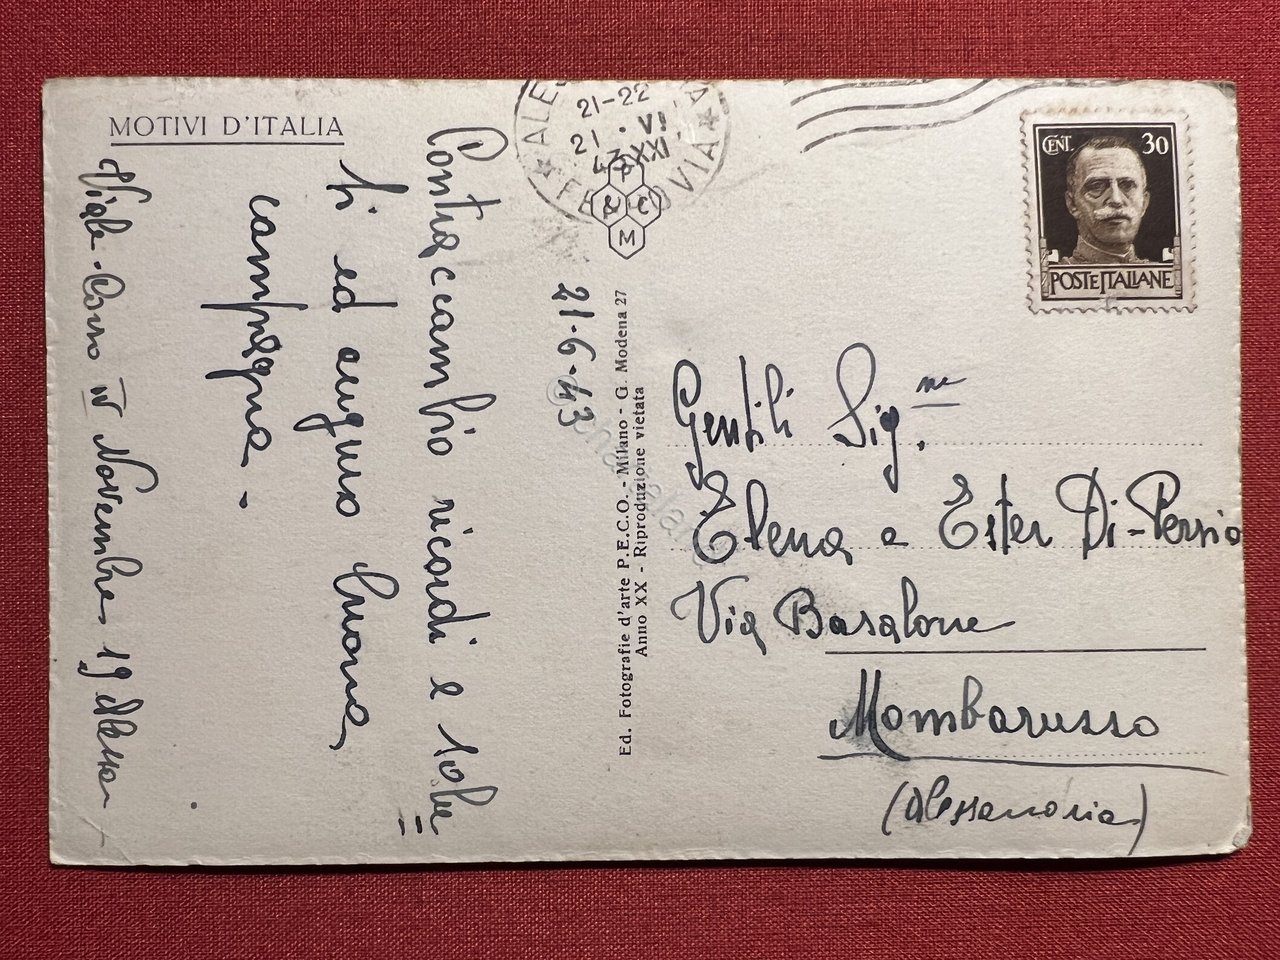 MOTIVI D'ITALIA
21-22
21 · VI
43 XXI
FERROVIA
P
E C
M
CENT. 30
POSTE ITALIANE
21-6-43
Contraccambio ricordi e salu=
ti ed auguro buona
campagna -
Corso IV Novembre 19
Ed. Fotografie d'arte P.E.C.O. - Milano - G. Modena 27
Anno XX - Riproduzione vietata
Gentili Sig.me
Elena e Ester Di-Persio
Via Basalone
Mombaruzzo
(Alessandria)